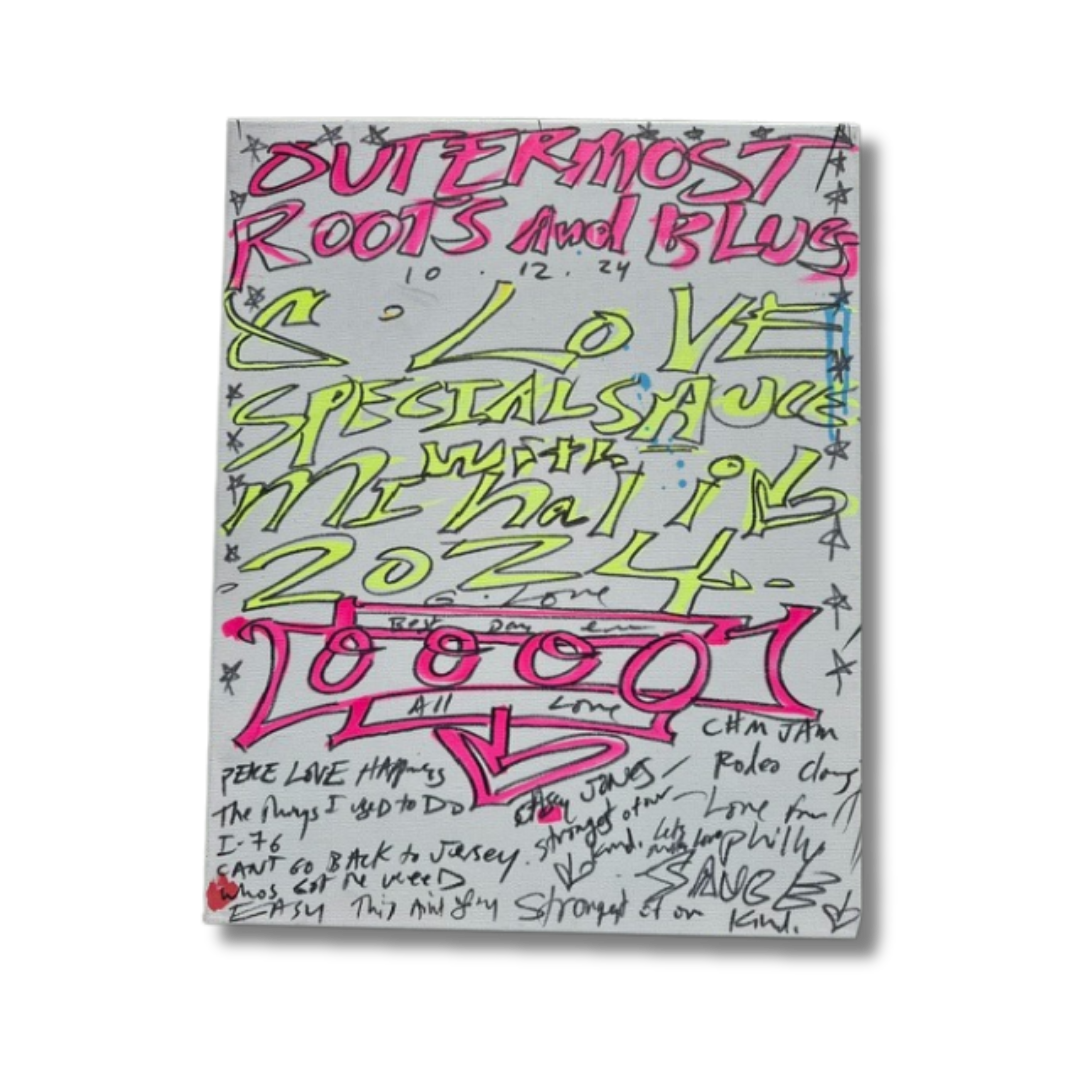 OUTERMOST
ROOTS And BLUES
10 . 12 . 24
G. LOVE
SPECIAL SAUCE
With
MIHALi
2024
G. Love
Best Day ever
OOOO
All Love
CHM JAM
PEACE LOVE HAPPiness
Rodeo Clowns
The Things I USED to DO
CAsey JONES
Love from
I-76
strongest of our kind.
lets make love
philly
CANT GO BACK to JERSEY.
SAUCE
Whos GOT the WEED
EASY This Aint
Strongest of our kind.